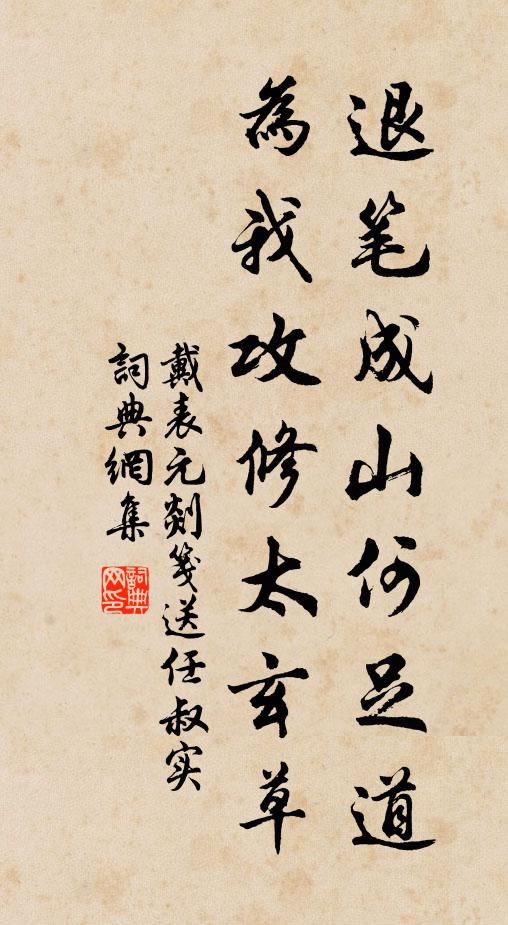 退笔成山何足道
為我攻修太玄草
戴表元剡箋送任叔实
詞典網集
詞典網印